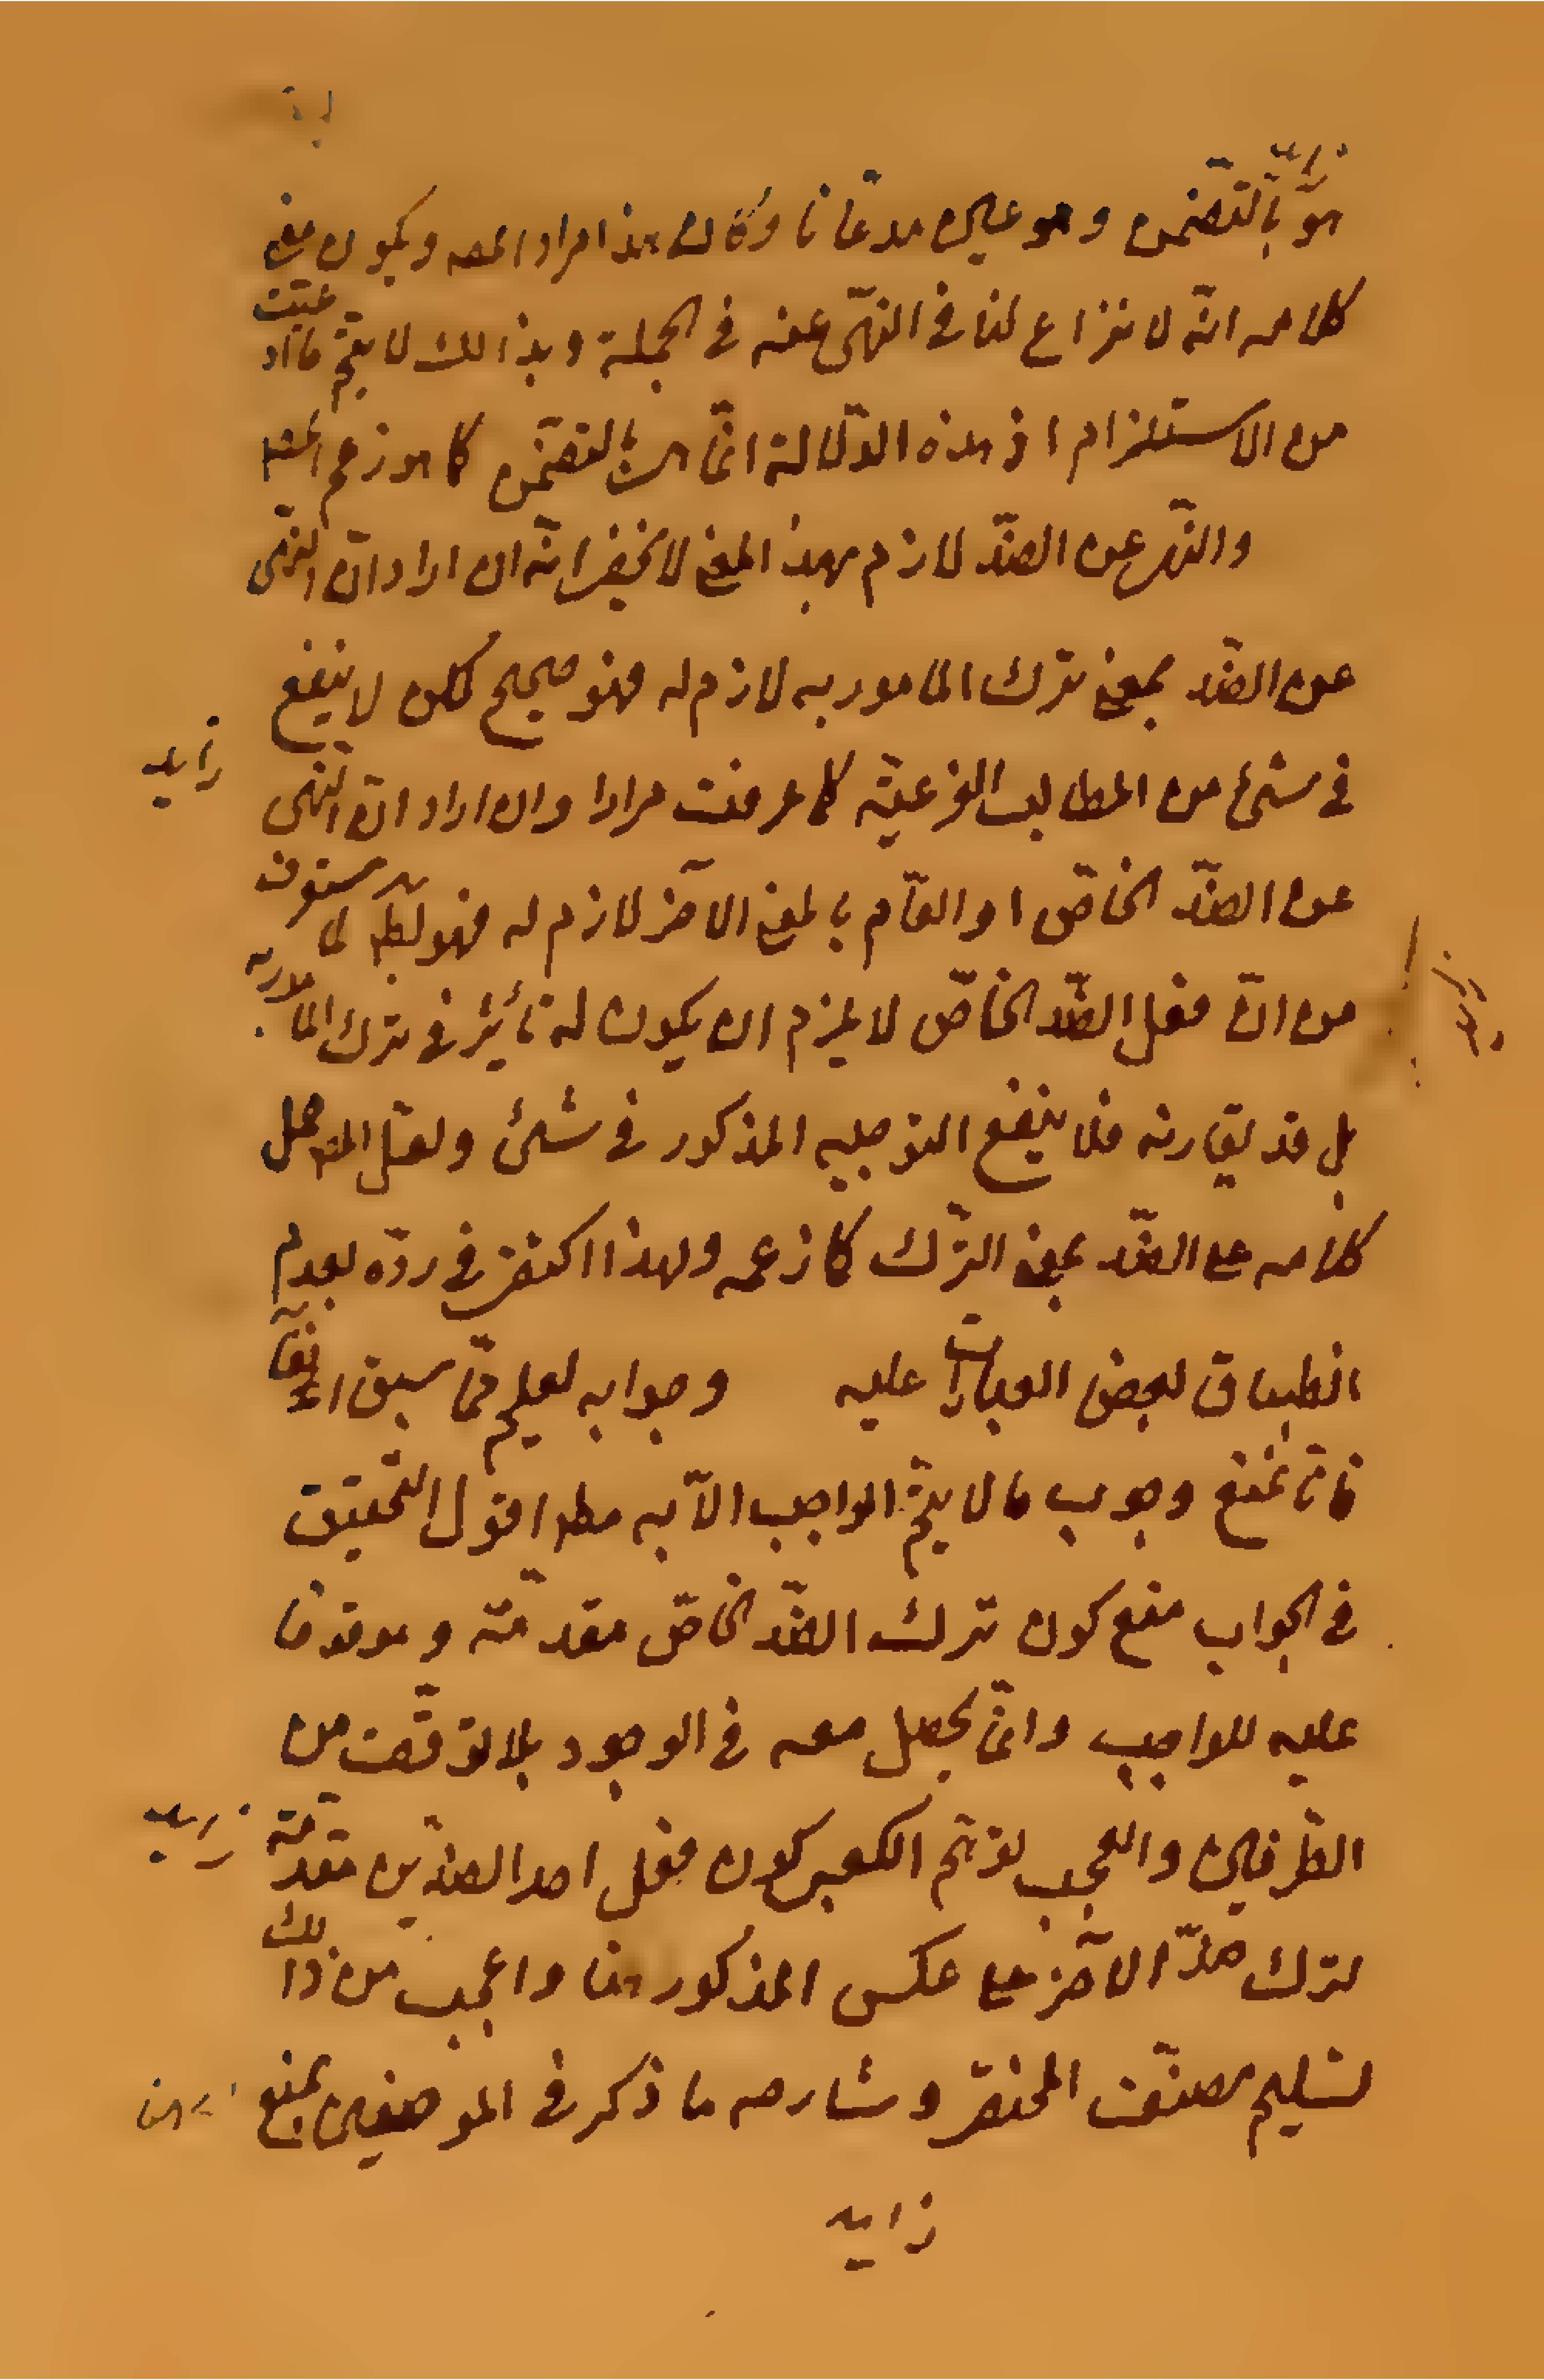 زايد
هو بالتضمن وهو عين مدعانا وكان هذا مراد المصه ويكون معنى
كلامه انّه لا نزاع لنا في النهى عنه في الجملة وبذالك لا يتمّ ما ادعيت
من الاستلزام اذ هذه الدّلالة انّما هى بالتضمّن كما هو زعم المصه
والنهى عن الضدّ لازم بهذا المعنى لا يخفى انّه ان اراد انّ النهى
عن الضد بمعنى ترك المامور به لازم له فهو صحيح لكن لا ينفع
زايد
في شئ من المطالب الفرعيّة كما عرفت مرارا وان اراد انّ النهى
عن الضدّ الخاصّ او العامّ بالمعنى الآخر لازم له فهو بط لما ستعرف
من انّ فعل الضّد الخاصّ لا يلزم ان يكون له تأثير في ترك المامور به
بل قد يقارنه فلا ينفع التوجيه المذكور في شئ ولعلّ المصه حمل
كلامه على الضّد بمعنى التّرك كما زعمه ولهذا اكتفى في ردّه بعدم
انطباق بعض العبارات عليه وجوابه يعلم ممّا سبق انفا
فانّا نمنع وجوب ما لا يتمّ الواجب الّا به مطلقا اقول التحقيق
في الجواب منع كون ترك الضّد الخاصّ مقدّمة و موقوفا
عليه للواجب وانّما يحصل معه في الوجود بلا توقّف من
الطّرفين والعجب توهّم الكعبى كون فعل احد الضدّين مقدّمة
زايد
لترك ضدّ الآخر على عكس المذكور هنا واعجب من ذالك
تسليم مصنّف المختصر وشارحه ما ذكر في الموضعين بمنع
زايد